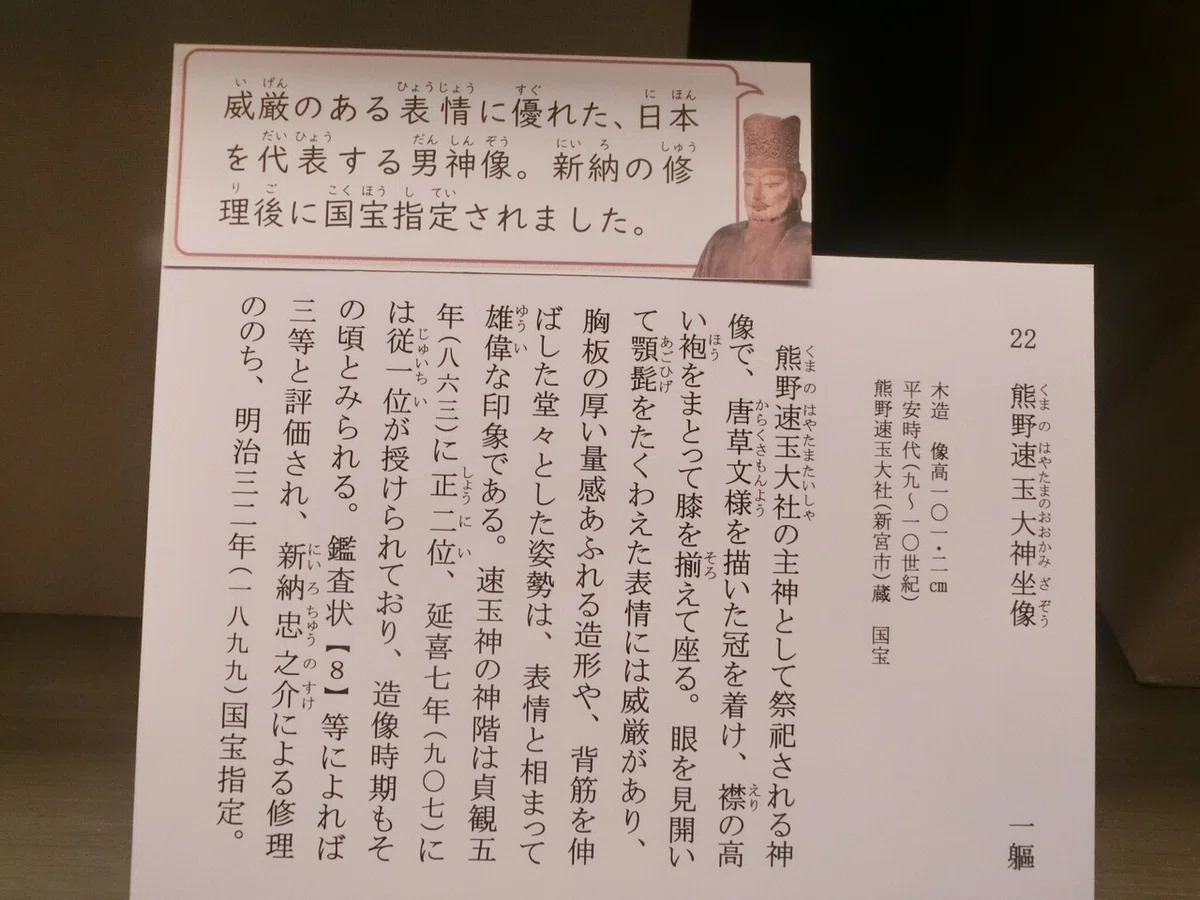 威厳のある表情に優れた、日本
を代表する男神像。新納の修
理後に国宝指定されました。
22 熊野速玉大神坐像 一軀
木造 像高一〇一・二㎝
平安時代(九〜一〇世紀)
熊野速玉大社(新宮市)蔵 国宝
熊野速玉大社の主神として祭祀される神
像で、唐草文様を描いた冠を着け、襟の高
い袍をまとって膝を揃えて座る。眼を見開い
て顎髭をたくわえた表情には威厳があり、
胸板の厚い量感あふれる造形や、背筋を伸
ばした堂々とした姿勢は、表情と相まって
雄偉な印象である。速玉神の神階は貞観五
年(八六三)に正二位、延喜七年(九〇七)に
は従一位が授けられており、造像時期もそ
の頃とみられる。鑑査状【8】等によれば
三等と評価され、新納忠之介による修理
ののち、明治三二年(一八九九)国宝指定。